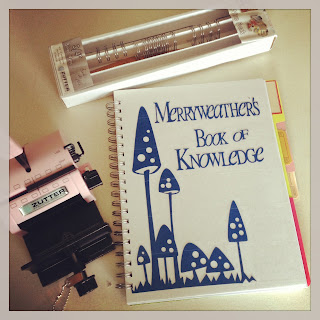 MERRYWEATHER'S
BOOK OF
KNOWLEDGE
ZUTTER